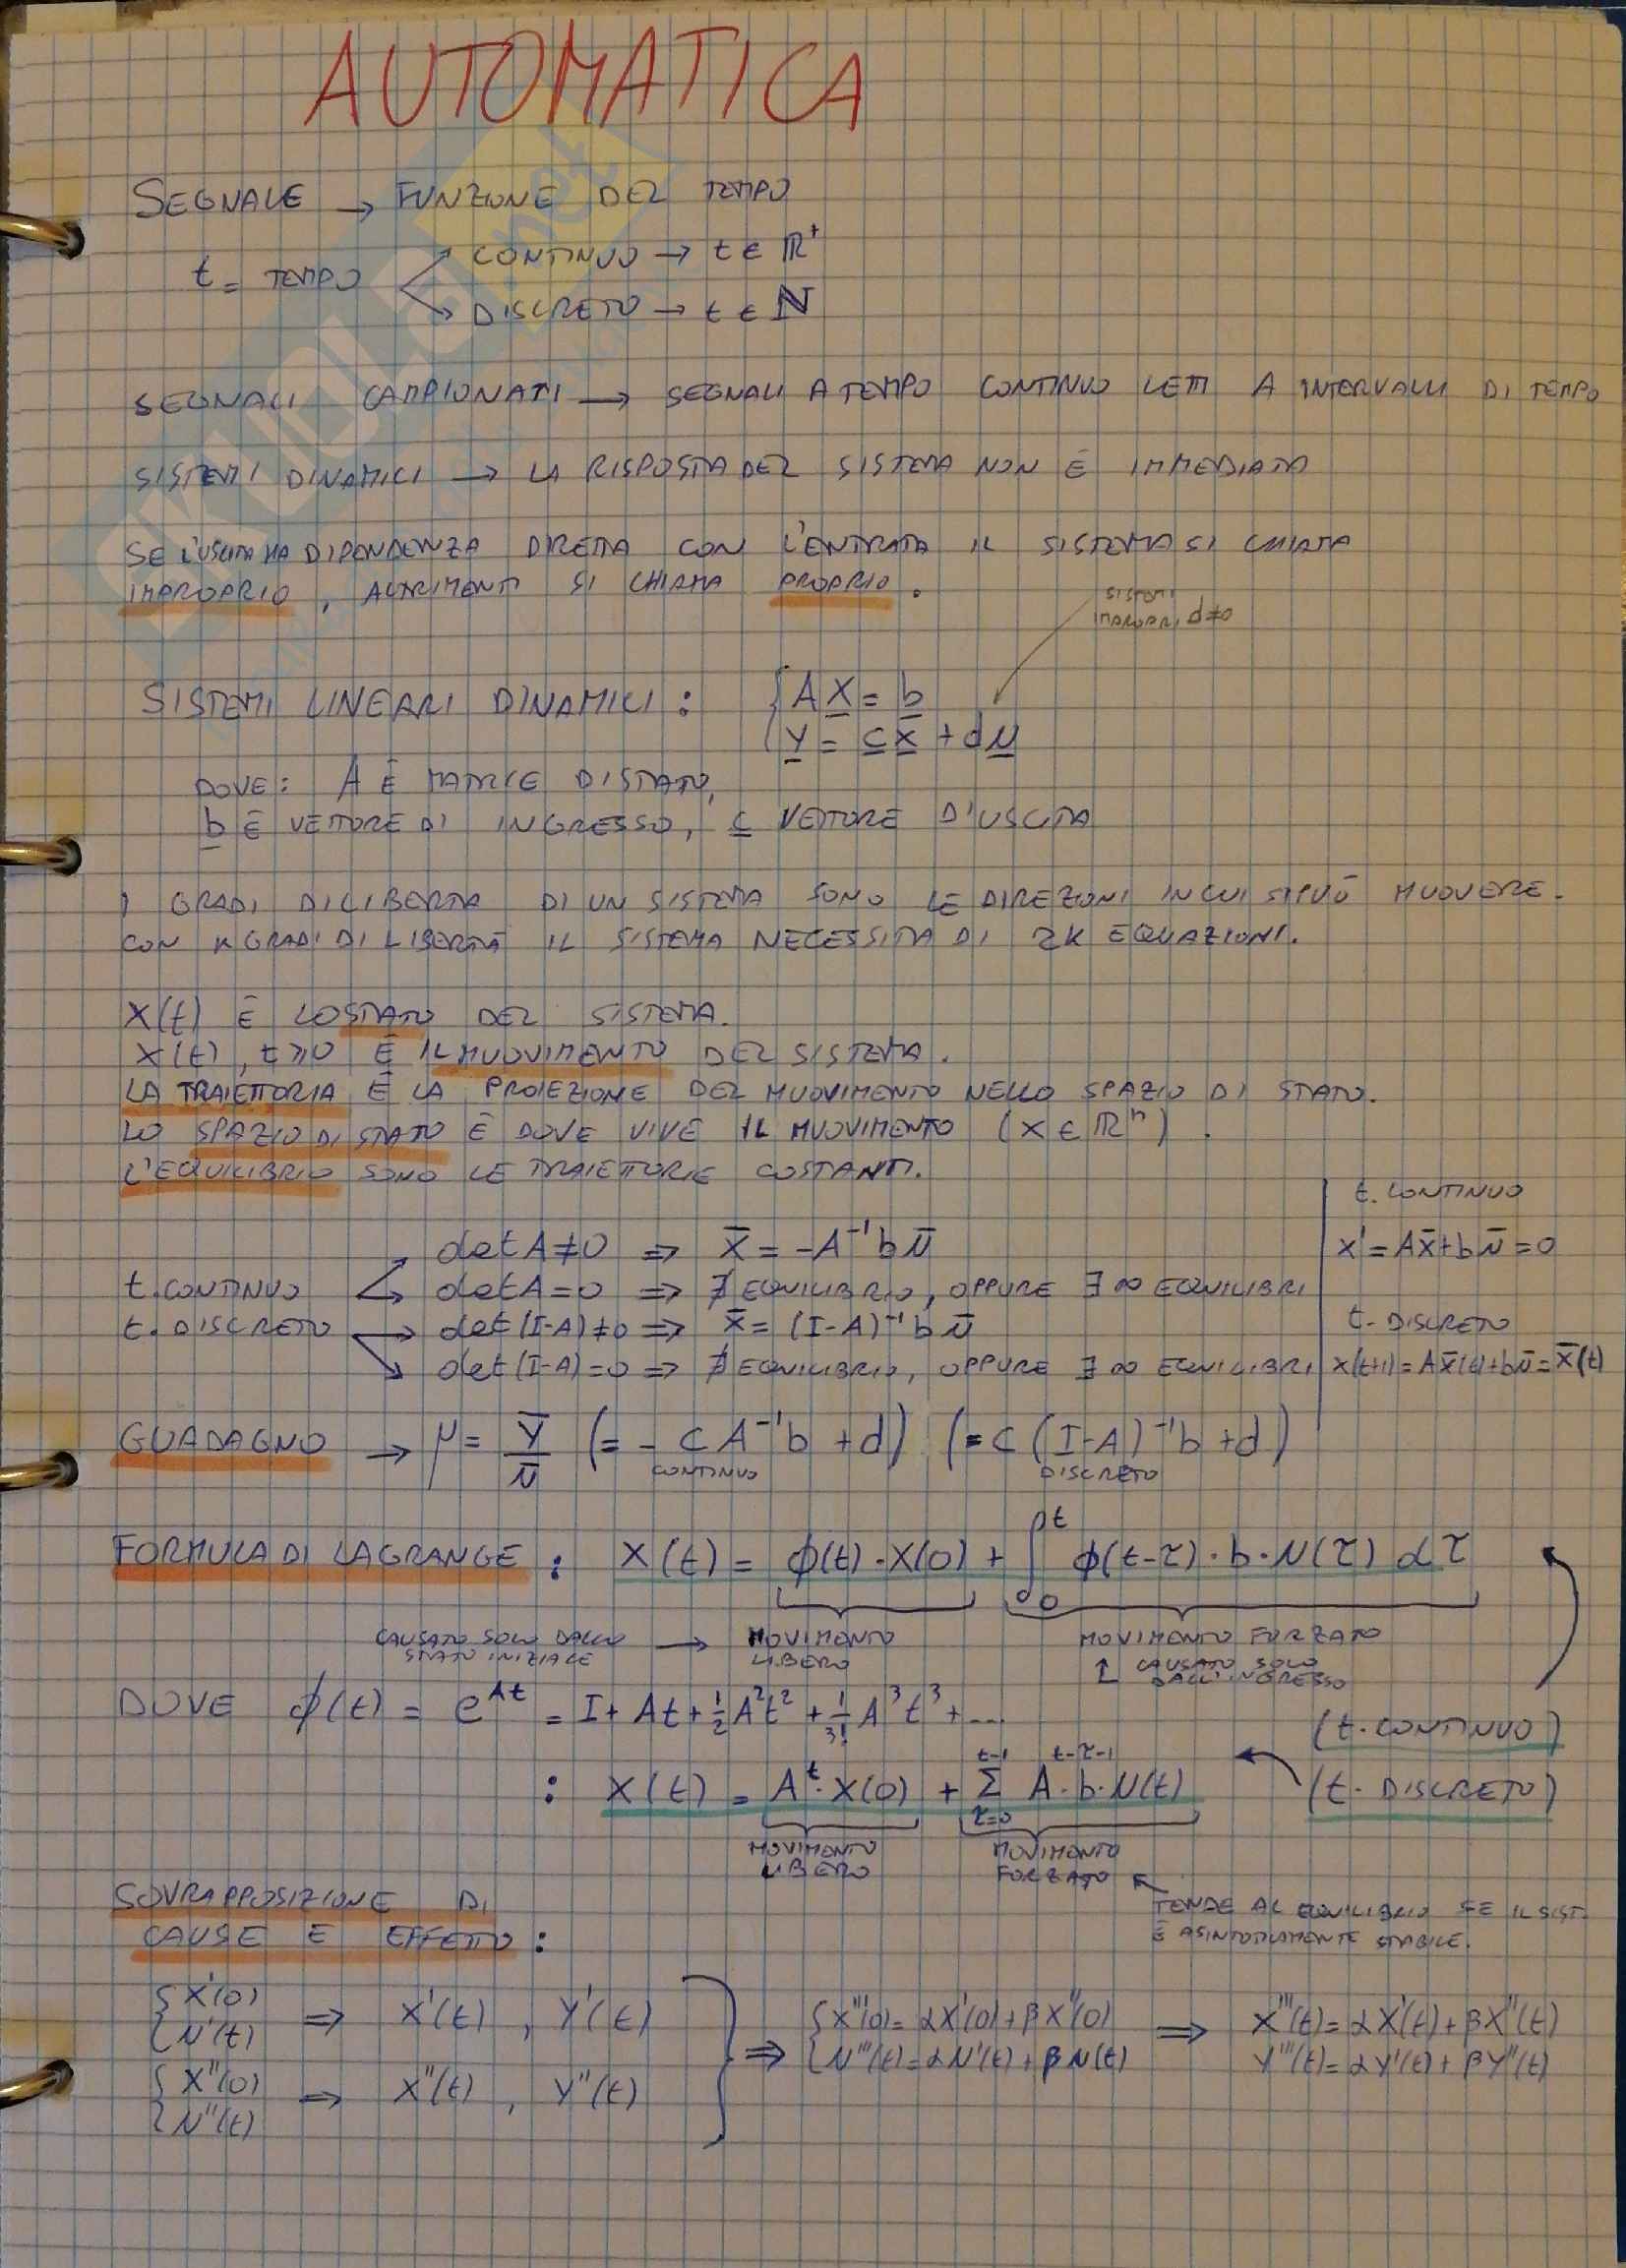 AUTOMATICA
SEGNALE → FUNZIONE DEL TEMPO
t = TEMPO
CONTINUO → t ∈ ℝ⁺
DISCRETO → t ∈ ℕ
SEGNALI CAMPIONATI → SEGNALI A TEMPO CONTINUO LETTI A INTERVALLI DI TEMPO
SISTEMI DINAMICI → LA RISPOSTA DEL SISTEMA NON È IMMEDIATA
SE L'USCITA HA DIPENDENZA DIRETTA CON L'ENTRATA IL SISTEMA SI CHIAMA
IMPROPRIO, ALTRIMENTI SI CHIAMA PROPRIO.
SISTEMI
IMPROPRI d≠0
SISTEMI LINEARI DINAMICI: { A X = b
Y = c x + d u
DOVE: A È MATRICE DI STATO,
b È VETTORE DI INGRESSO, c VETTORE D'USCITA
I GRADI DI LIBERTÀ DI UN SISTEMA SONO LE DIREZIONI IN CUI SI PUÒ MUOVERE.
CON K GRADI DI LIBERTÀ IL SISTEMA NECESSITA DI 2K EQUAZIONI.
X(t) È LO STATO DEL SISTEMA.
X(t), t ≥ 0 È IL MUOVIMENTO DEL SISTEMA.
LA TRAIETTORIA È LA PROIEZIONE DEL MUOVIMENTO NELLO SPAZIO DI STATO.
LO SPAZIO DI STATO È DOVE VIVE IL MUOVIMENTO (X ∈ ℝⁿ).
L'EQUILIBRIO SONO LE TRAIETTORIE COSTANTI.
t. CONTINUO
det A≠0 ⇒ x̄ = -A⁻¹bū
x' = Ax̄+bū=0
t. CONTINUO
det A=0 ⇒ ∄ EQUILIBRIO, OPPURE ∃ ∞ EQUILIBRI
t. DISCRETO
det (I-A)≠0 ⇒ x̄ = (I-A)⁻¹bū
t. DISCRETO
det (I-A)=0 ⇒ ∄ EQUILIBRIO, OPPURE ∃ ∞ EQUILIBRI
x(t+1) = Ax̄(t)+bū = x̄(t)
GUADAGNO → μ = ȳ/ū (= - cA⁻¹b + d) (= c(I-A)⁻¹b + d)
CONTINUO DISCRETO
FORMULA DI LAGRANGE: X(t) = ϕ(t)·X(0) + ∫₀ᵗ ϕ(t-τ)·b·u(τ) dτ
CAUSATO SOLO DALLO STATO INIZIALE → MOVIMENTO LIBERO
MOVIMENTO FORZATO
↑ CAUSATO SOLO DALL'INGRESSO
DOVE ϕ(t) = e^At = I + At + 1/2 A²t² + 1/3! A³t³ + ...
(t. CONTINUO)
: X(t) = Aᵗ·X(0) + Σ(τ=0, t-1) A^(t-τ-1)·b·u(t)
(t. DISCRETO)
MOVIMENTO LIBERO
MOVIMENTO FORZATO
TENDE AL EQUILIBRIO SE IL SIST.
È ASINTOTICAMENTE STABILE.
SOVRAPPOSIZIONE DI
CAUSE E EFFETTO:
{ X'(0)
u'(t) ⇒ X'(t), Y'(t)
{ X''(0)
u''(t) ⇒ X''(t), Y''(t)
⇒ { X'''(0) = αX'(0) + βX''(0)
u'''(t) = αu'(t) + βu(t)
⇒ X'''(t) = αX'(t) + βX''(t)
Y'''(t) = αY'(t) + βY''(t)